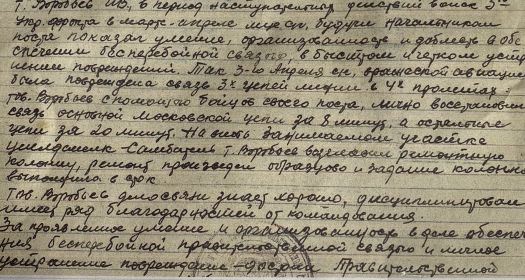 т. Воробьев ИВ, в период наступательных действий войск 3го
Укр. фронта в марте-апреле мце с/г, будучи начальником
поста показал умение, организованность и доблесть в обе
спечении бесперебойной связи, в быстром и четком устра
нении повреждений. Так 3-го Апреля с/г, вражеской авиацие
была повреждена связь 3х цепей линии в 4х пролетах
тов. Воробьев с помощью бойцов своего поста, лично восстановил
связь основной Московской цепи за 8 минут, а остальные
цепи за 20 минут. На вновь занимаемом участке
т. Воробьев возглавил ремонтную
колонну, ремонт произведен образцово и задание колонна
выполнила в срок
Тов. Воробьев дело связи знает хорошо, дисциплинирован
имеет ряд благодарностей от командования.
За проявленное умение и организованность в деле обеспече
ния бесперебойной правительственной связью и личное
устранение повреждение - достоин Правительственной